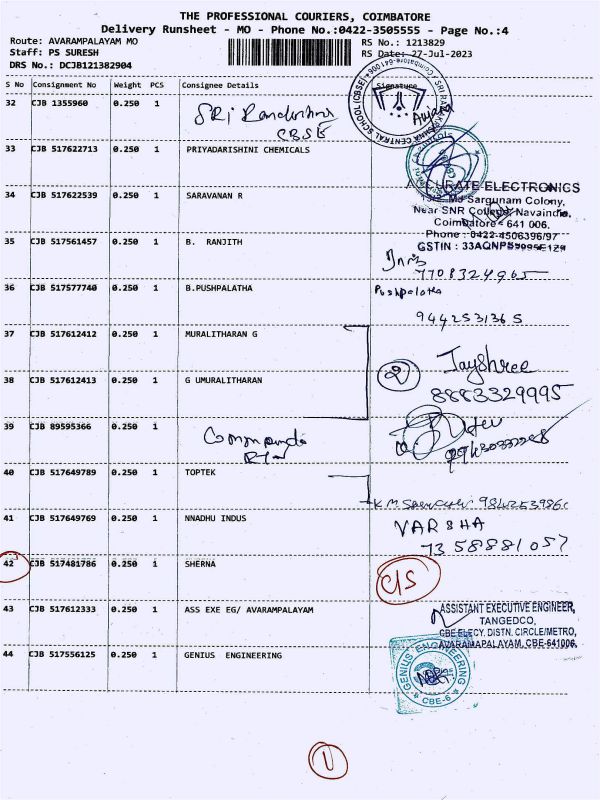 THE PROFESSIONAL COURIERS, COIMBATORE
Delivery Runsheet - MO - Phone No.:0422-3505555 - Page No.:4
Route: AVARAMPALAYAM MO RS No.: 1213829
Staff: PS SURESH RS Date: 27-Jul-2023
DRS No.: DCJB121382904
S No Consignment No Weight PCS Consignee Details Signature
32 CJB 1355960 0.250 1 SRi Ramkrishna
CBSE
33 CJB 517622713 0.250 1 PRIYADARISHINI CHEMICALS
34 CJB 517622539 0.250 1 SARAVANAN R
ACCURATE ELECTRONICS
Sargunam Colony,
Near SNR College, Navaindia,
Coimbatore - 641 006.
Phone : 0422-4506396/97
35 CJB 517561457 0.250 1 B. RANJITH
GSTIN :
7708324965
36 CJB 517577740 0.250 1 B.PUSHPALATHA
Pushpalatha
9442531365
37 CJB 517612412 0.250 1 MURALITHARAN G
38 CJB 517612413 0.250 1 G UMURALITHARAN
2 Jayshree
8883329995
39 CJB 89595366 0.250 1
40 CJB 517649789 0.250 1 TOPTEK
41 CJB 517649769 0.250 1 NNADHU INDUS
VARSHA
7358881057
42 CJB 517481786 0.250 1 SHERNA
C/S
43 CJB 517612333 0.250 1 ASS EXE EG/ AVARAMPALAYAM
ASSISTANT EXECUTIVE ENGINEER,
TANGEDCO,
CBE ELECY. DISTN. CIRCLE/METRO,
AVARAMAPALAYAM, CBE-641006.
44 CJB 517556125 0.250 1 GENIUS ENGINEERING
GENIUS ENGINEERING
CBE-6
1